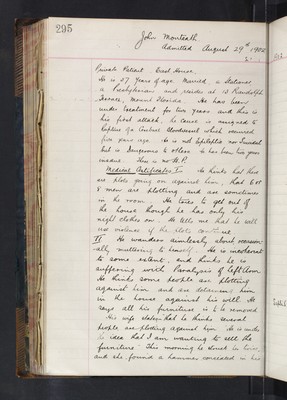 295
John Monteath
Admitted August 29th 1902
Private Patient East House
He is 57 years of age Married, a Stationer
a Presbyterian and resides at 13 Randolph
Terrace, Mount Florida. He has been
under treatment for two years and this is
his first attack, the cause is assigned to
Rupture of a Cerebral bloodvessel which occurred
five years ago. He is not Epileptic nor Suicidal
but is Dangerous to others. He has been two years
insane. There is no H.P.
Medical Certificates I. He thinks that there
are plots going on against him, that 6 or
8 men are plotting and are sometimes
in the room. He tries to get out of
the house though he has only his
night clothes on. He tells me that he will
use violence if the plots continue
II He wanders aimlessly about occasion-
ally muttering to himself. He is incoherent
to some extent, and thinks he is
suffering with Paralysis of left arm
He thinks some people are plotting
against him and are detaining him
in the house against his will. He
says all his furniture is to be removed
His wife states that he thinks several
people are plotting against him. He is under
the idea that I am wanting to sell the
furniture. This morning he struck his
and she found a hammer concealed in his